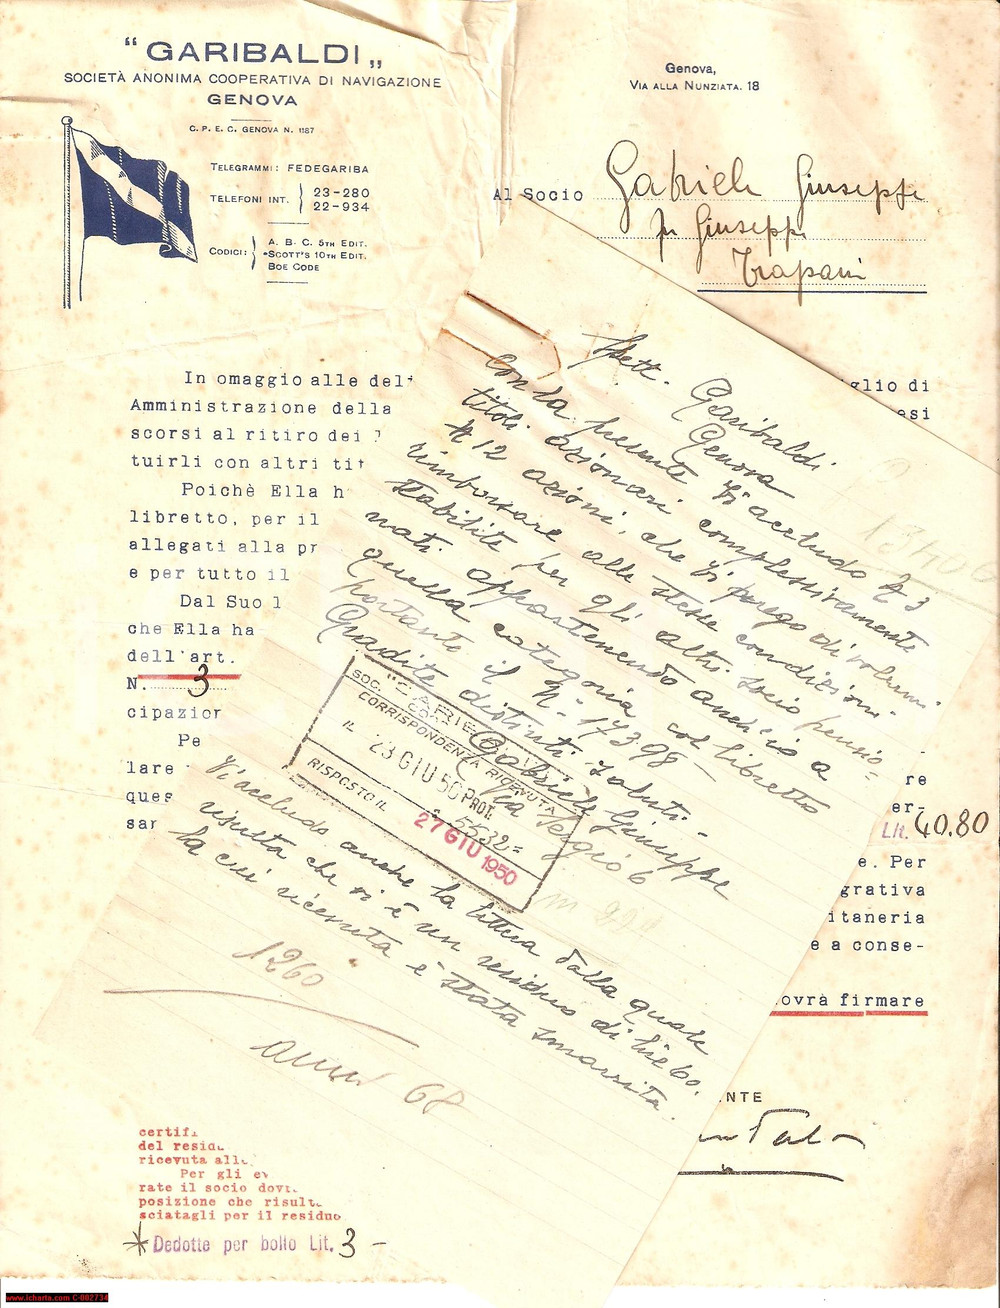 “GARIBALDI„
SOCIETÀ ANONIMA COOPERATIVA DI NAVIGAZIONE
GENOVA
C. P. E. C. GENOVA N. 1187
TELEGRAMMI: FEDEGARIBA
TELEFONI INT. 23-280
22-934
CODICI: A. B. C. 5TH EDIT.
•SCOTT'S 10TH EDIT.
BOE CODE
Genova,
VIA ALLA NUNZIATA. 18
Al Socio Gabriele Giuseppe
fu Giuseppe
Trapani
In omaggio alle del
glio di
Amministrazione della
esi
scorsi al ritiro dei
tuirli con altri tit
Poichè Ella h
libretto, per il
allegati alla pr
e per tutto il
Dal Suo l
che Ella ha
dell'art.
N. 3
cipazion
Pe
lare
re
ques
er-
san
Lit. 40.80
e. Per
grativa
itaneria
e a conse-
ovrà firmare
NTE
Spett. Garibaldi
Genova
Con la presente Vi accludo N 3
titoli azionari complessivamente
N 12 azioni, che Vi prego di volermi
rimborsare alle stesse condizioni
stabilite per gli altri soci pensio=
nati appartenendo anch'io a
quella categoria col libretto
portante il N. 17398 -
Gradite distinti saluti. -
Gabriele Giuseppe
Via Sergio 6
SOC. "GARIB
COOP.
CORRISPONDENZA RICEVUTA
IL 23 GIU 50 PROT.
5532=
RISPOSTO IL
27 GIU 1950
Vi accludo anche la lettera dalla quale
risulta che vi è un residuo di lire 60.
la cui ricevuta è stata smarrita.
1260
anni 68
certifi
del resid
ricevuta all
Per gli e
rate il socio dovr
posizione che risult
sciatagli per il residuo
* Dedotte per bollo Lit. 3 -
www.icharta.com C-002734